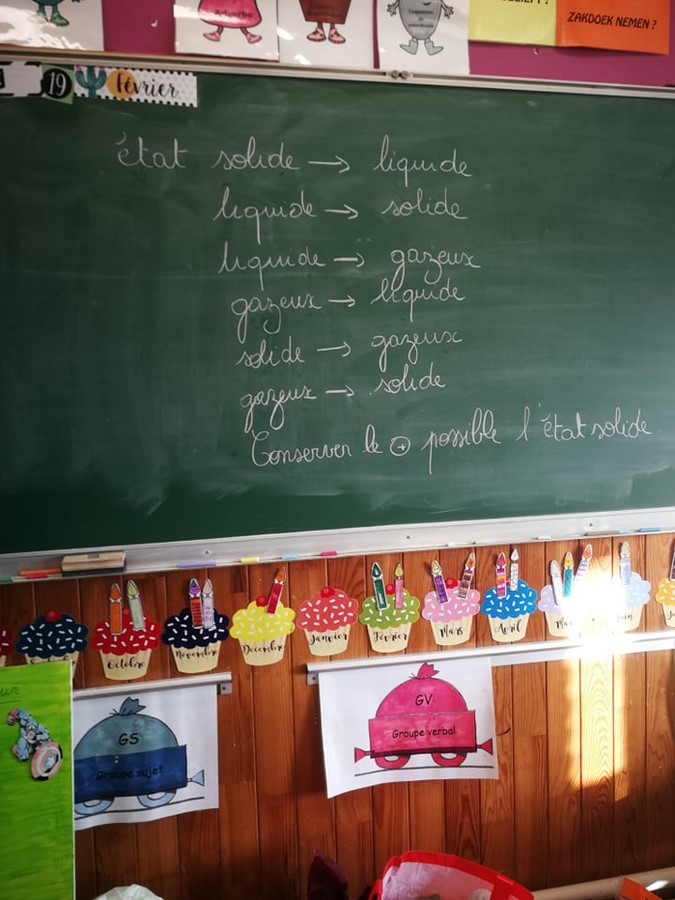 Adverbe
ZAKDOEK NEMEN ?
19 février
état solide → liquide
liquide → solide
liquide → gazeux
gazeux → liquide
solide → gazeux
gazeux → solide
Conserver le + possible l'état solide
Octobre
Novembre
Décembre
Janvier
Février
Mars
Avril
GS
Groupe sujet
GV
Groupe verbal